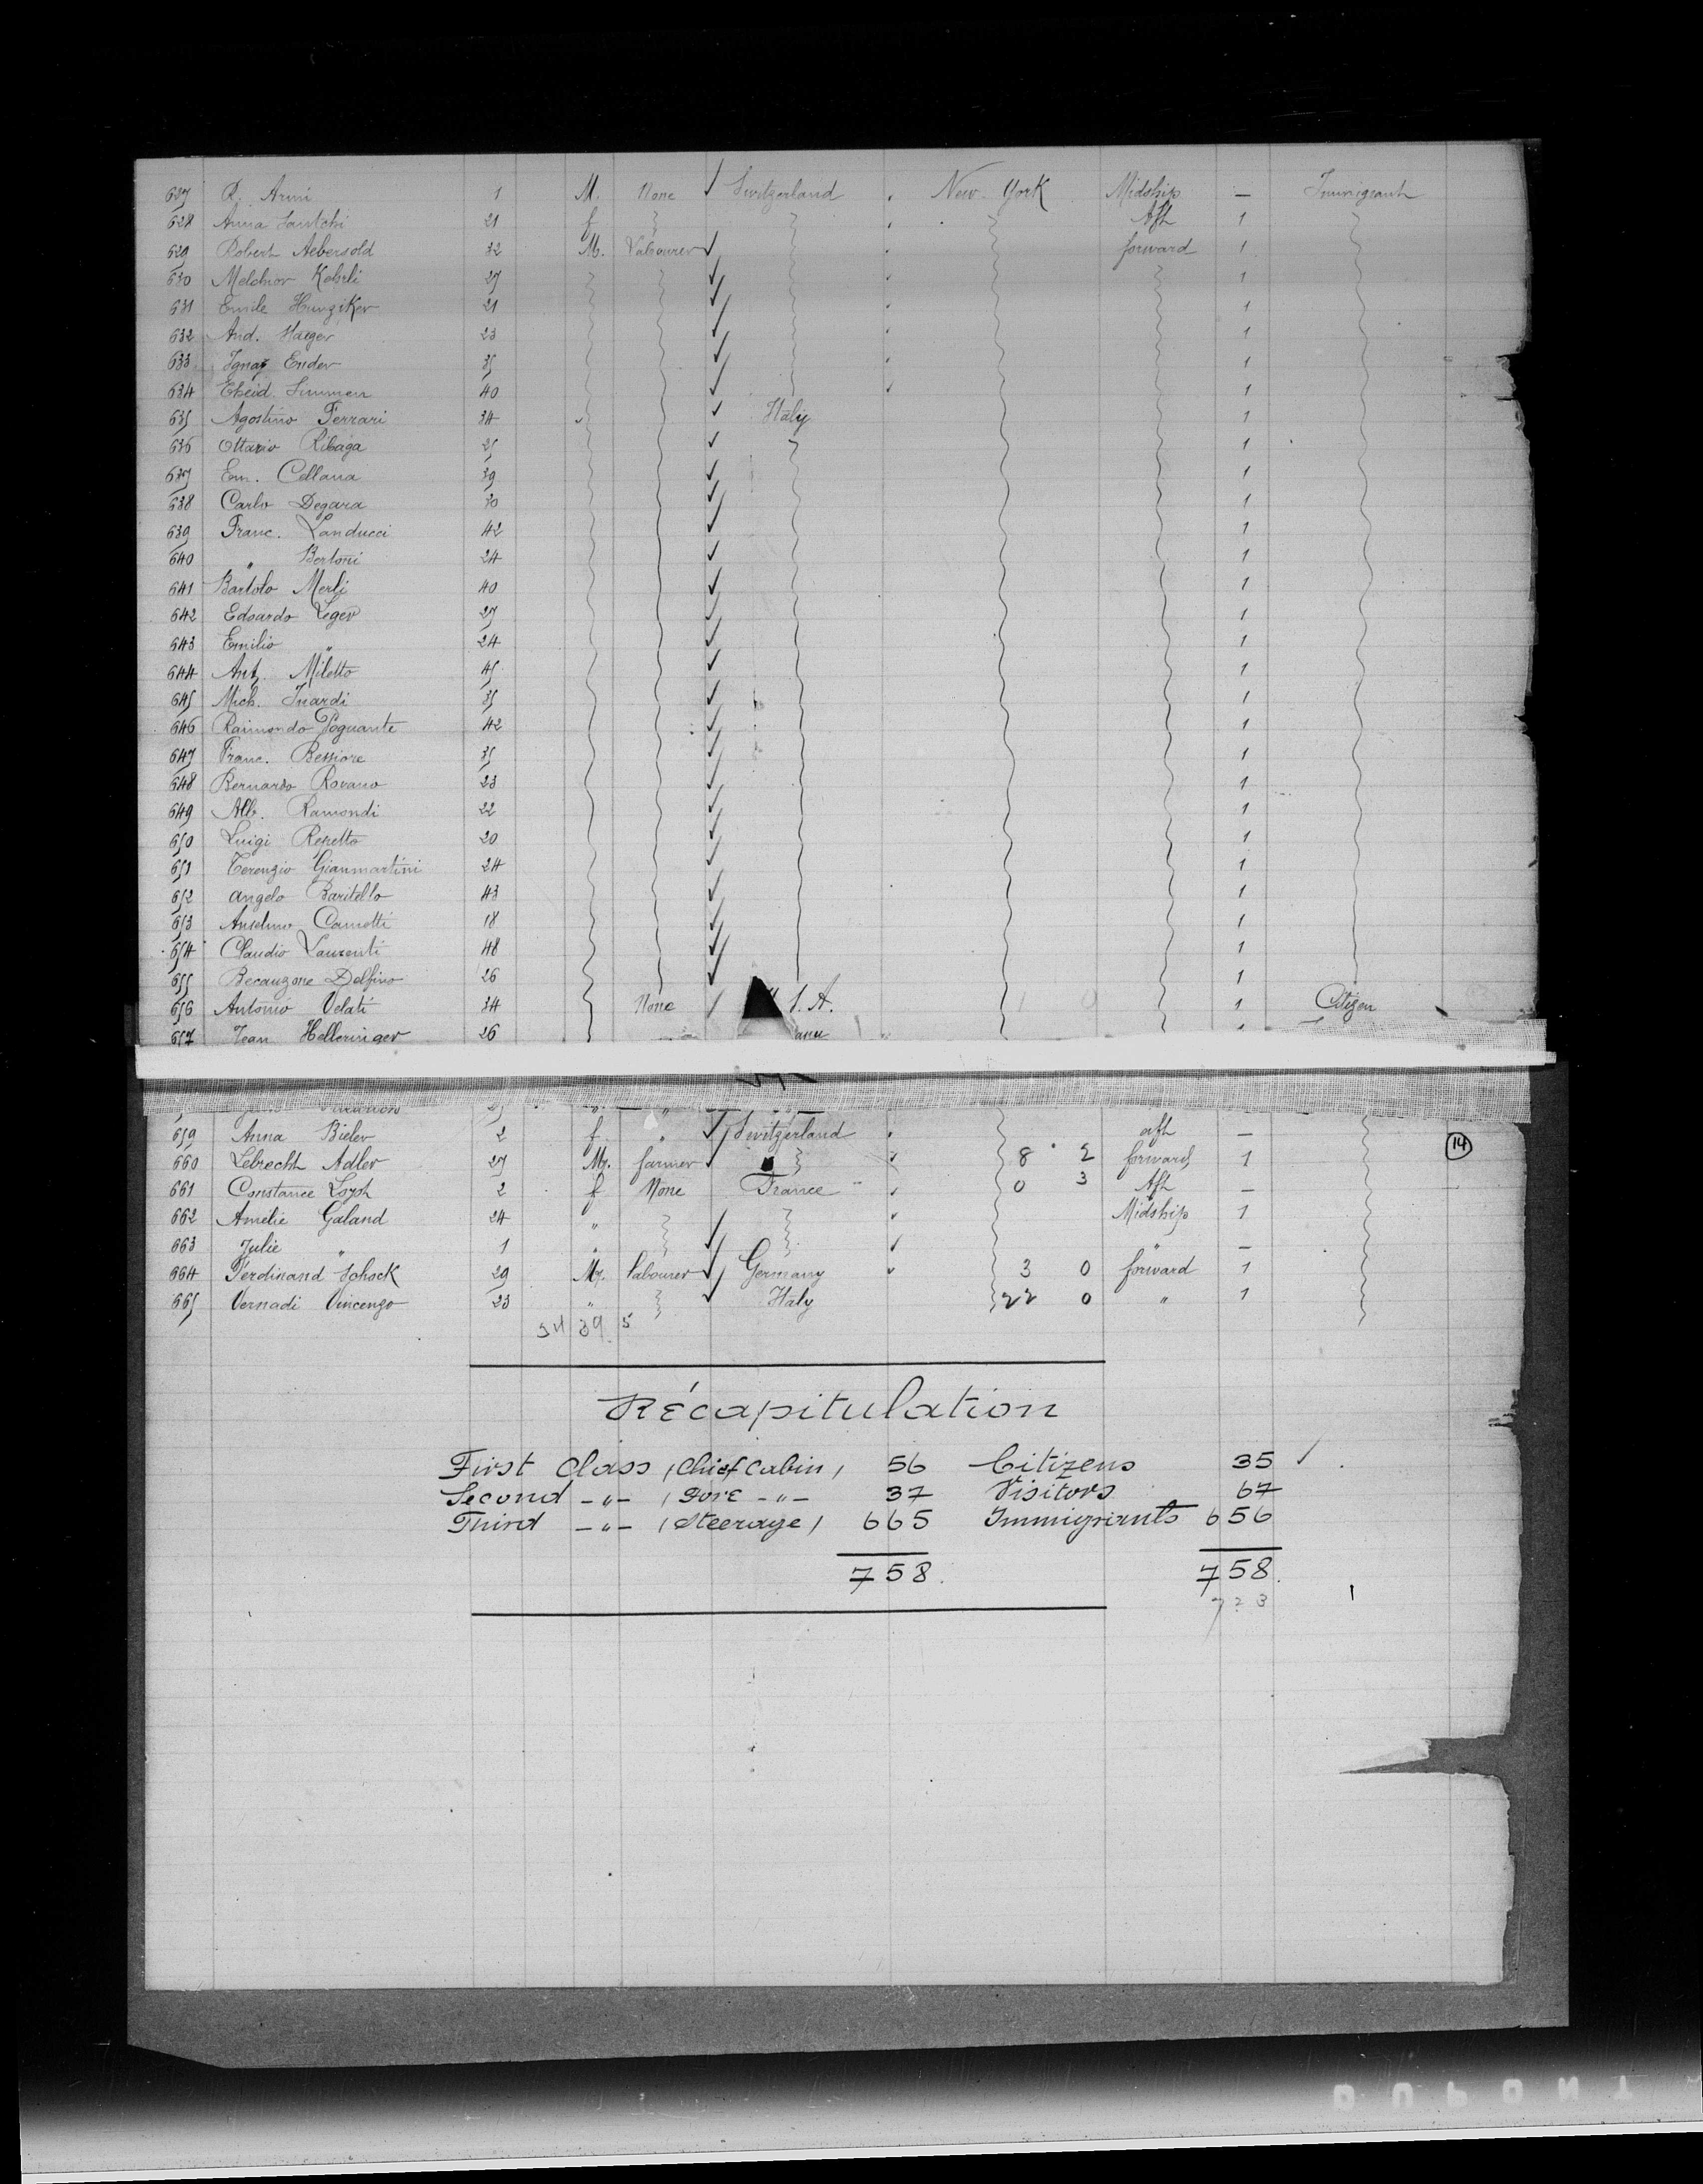 627 R. Armi 1 M. None Switzerland New York Midship — Immigrant
628 Anna 21 f Aft 1
629 Robert Aebersold 32 M. Labourer forward 1
630 Melchior 27 1
631 Emile Hunziker 21 1
632 And. Haeger 23 1
633 Ignaz Ender 35 1
634 40 1
635 Agostino Ferrari 34 Italy 1
636 Ottavio Ribaga 25 1
637 Em. Cellana 39 1
638 Carlo Degara 30 1
639 Franc. Landucci 42 1
640 " Bertoni 24 1
641 Bartolo Merli 40 1
642 Edoardo Leger 27 1
643 Emilio " 24 1
644 Ant. Miletto 45 1
645 Mich. Inardi 35 1
646 Raimondo Poguante 42 1
647 Franc. Bessiore 35 1
648 Bernardo Rovano 23 1
649 Alb. Ramondi 22 1
650 Luigi Repetto 20 1
651 Terenzio Gianmartini 24 1
652 Angelo Baritello 43 1
653 Anselmo Camotti 18 1
654 Claudio Laurenti 48 1
655 Delfino 26 1
656 Antonio Velati 34 None S. A. 1 Citizen
657 Jean Helleringer 26
659 Anna Bieler 2 f " Switzerland aft —
660 Lebrecht Adler 27 M. farmer 8 2 forward 1
661 Constance 2 f None France 0 3 Aft —
662 Amelie Galand 24 " Midship 1
663 Julie " 1 " " —
664 Ferdinand Schock 29 M. labourer Germany 3 0 forward 1
665 Vernadi Vincenzo 23 " Italy 22 0 " 1
34 39 5
14
Récapitulation
First Class (Chief Cabin) 56 Citizens 35
Second -"- ( -"- 37 Visitors 67
Third -"- (Steerage) 665 Immigrants 656
758. 758.
723
DUPONT